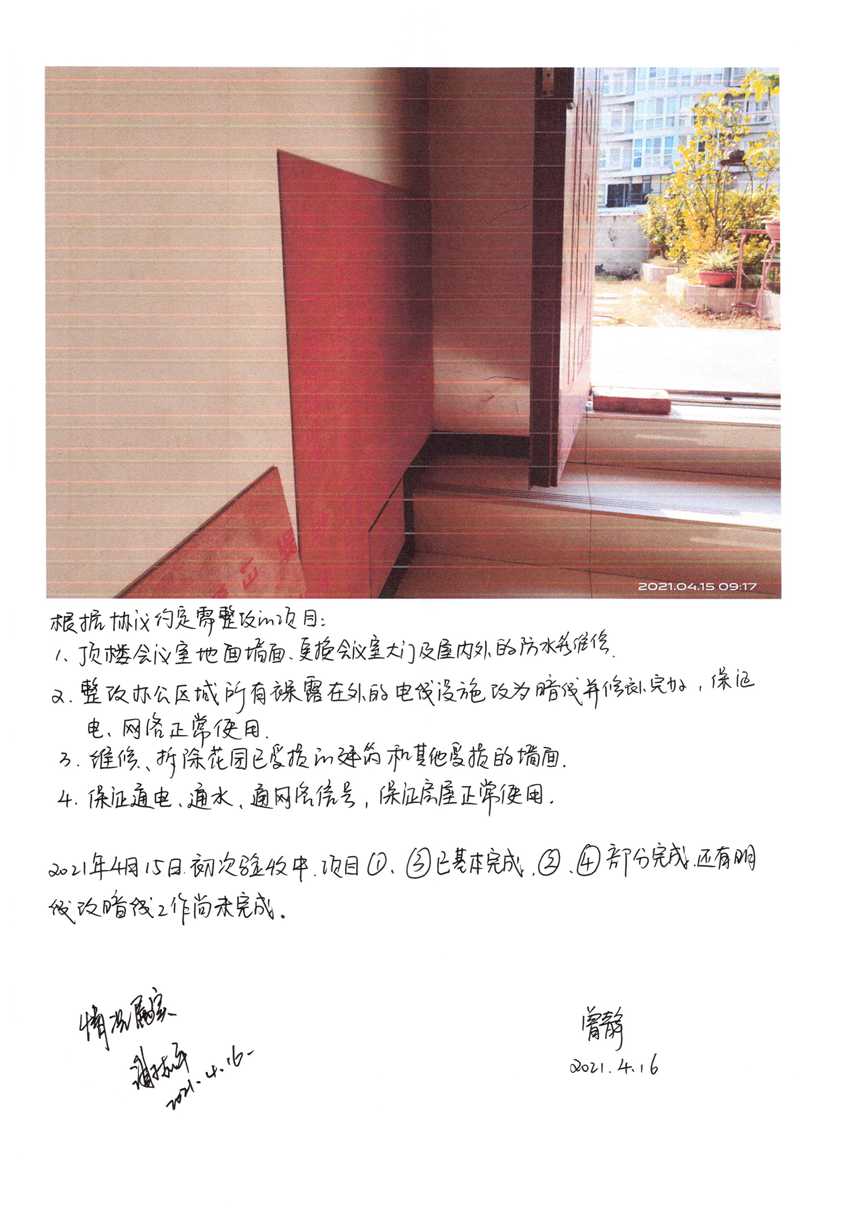 2021.04.15 09:17
根据协议约定需整改的项目:
1、顶楼会议室地面墙面、更换会议室大门及屋内外的防水和维修.
2. 整改办公区域所有裸露在外的电线设施改为暗线并修刮完好,保证
电、网络正常使用.
3. 维修、拆除花园已受损的建筑和其他受损的墙面.
4. 保证通电、通水、通网络信号,保证房屋正常使用.
2021年4月15日.初次验收中.项目①、③已基本完成.②、④部分完成.还有明
线改暗线工作尚未完成。
情况属实
2021.4.16
曾静
2021.4.16